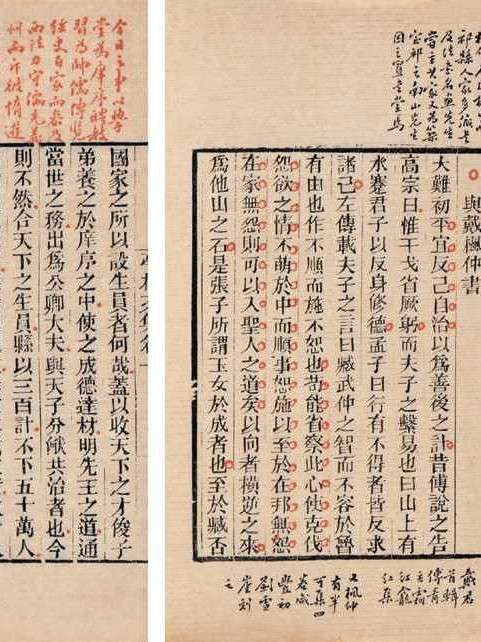 祁縣人家多藏
因
與戴楓仲書
大難初平宜反己自治以為善後之計昔傅說之告
高宗曰惟干戈省厥躬而夫子之繫易也曰山上有
水蹇君子以反身修德孟子曰行有不得者皆反求
諸己左傳載夫子之言曰臧武仲之智而不容於魯
有由也作不順而施不恕也茍能省察此心使克伐
怨欲之情不萌於中而順事恕施以至於在邦無怨
在家無怨則可以入聖人之道矣以向者橫逆之來
為他山之石是張子所謂玉女於成者也至於臧否
戴君
首輯
傅青
主霜
紅龕
又楓仲
有半
可集四
卷咸
豐初
劉雪
崖刻
之
今日之事以
經史百家而
國家之所以設生員者何哉蓋以收天下之才俊子
弟養之於庠序之中使之成德達材明先王之道通
當世之務出為公卿大夫與天子分猷共治者也今
則不然合天下之生員縣以三百計不下五十萬人